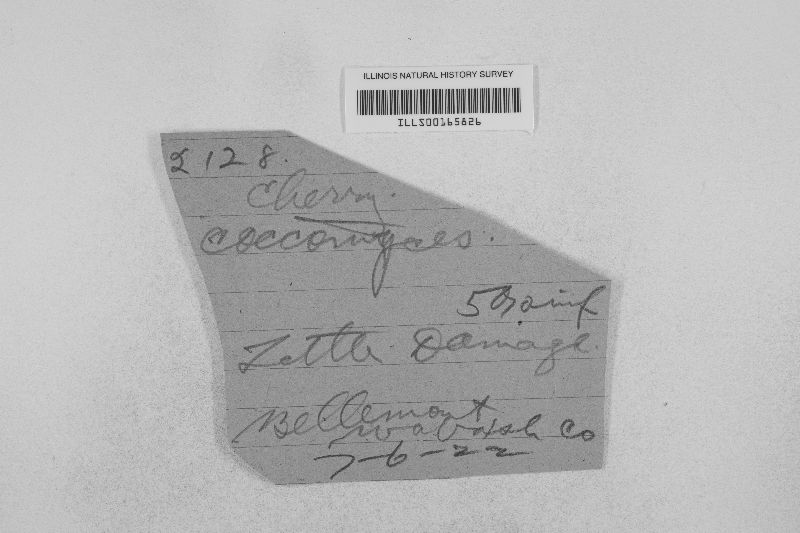 ILLINOIS NATURAL HISTORY SURVEY
ILLS00165826
2128.
Cherry.
Coccomyces.
50% inf
Little Damage.
Bellemont
Wabash Co
7-6-22